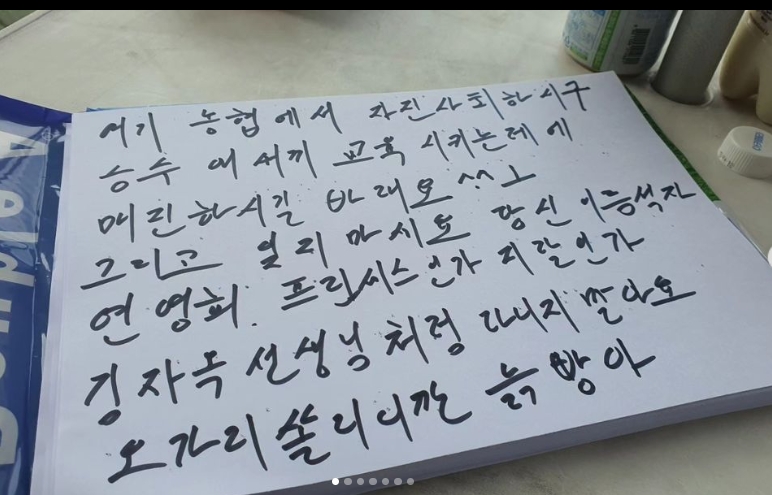 여기 농협에서 자진사퇴하시구
승수 애새끼 교육 시키는데에
매진하시길 바래요 ^^
그리고 잊지 마시요 당신 이름석자
연영희. 프린씨스인가 지랄인가
김자옥 선생님처럼 다니지 말아요
오가리 쏠리니깐 늙방아